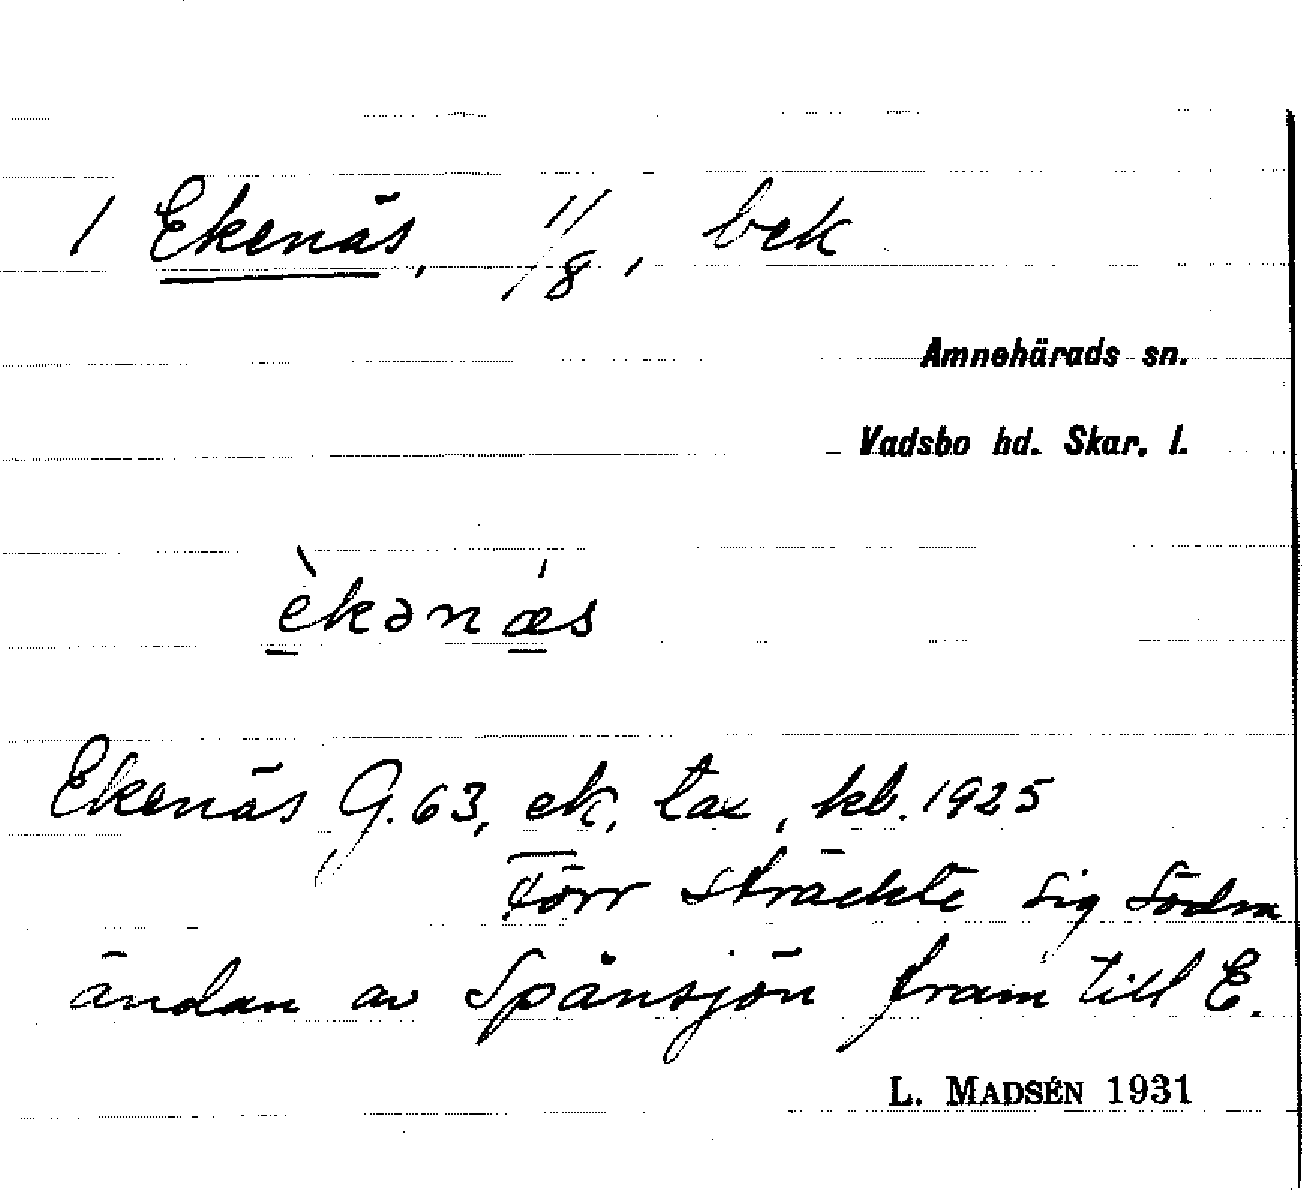 1 Ekenäs, 11/8, bek
Amnehärads sn.
Vadsbo hd. Skar. l.
èkənǽs
Ekenäs G.63, ek, tax, kb. 1925
Förr sträckte sig södra
ändan av Spånsjön fram till E.
L. MADSÉN 1931